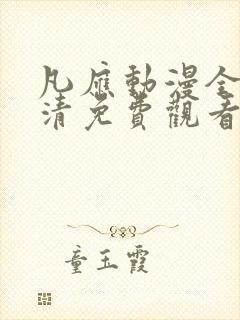 凡應動漫全
清免費觀看
童玉霞